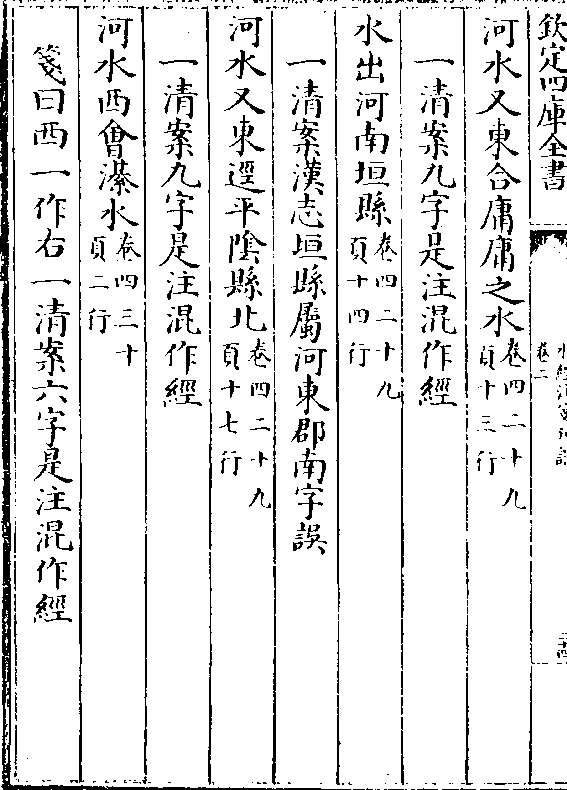 欽定四庫全書
水經注箋刊誤
卷二
河水又東合庸庸之水卷四二十九頁十三行
一清案九字是注混作經
水出河南垣縣卷四二十九頁十四行
一清案漢志垣縣屬河東郡南字誤
河水又東逕平陰縣北卷四二十九頁十七行
一清案九字是注混作經
河水西會濝水卷四三十頁二行
箋曰西一作右一清案六字是注混作經